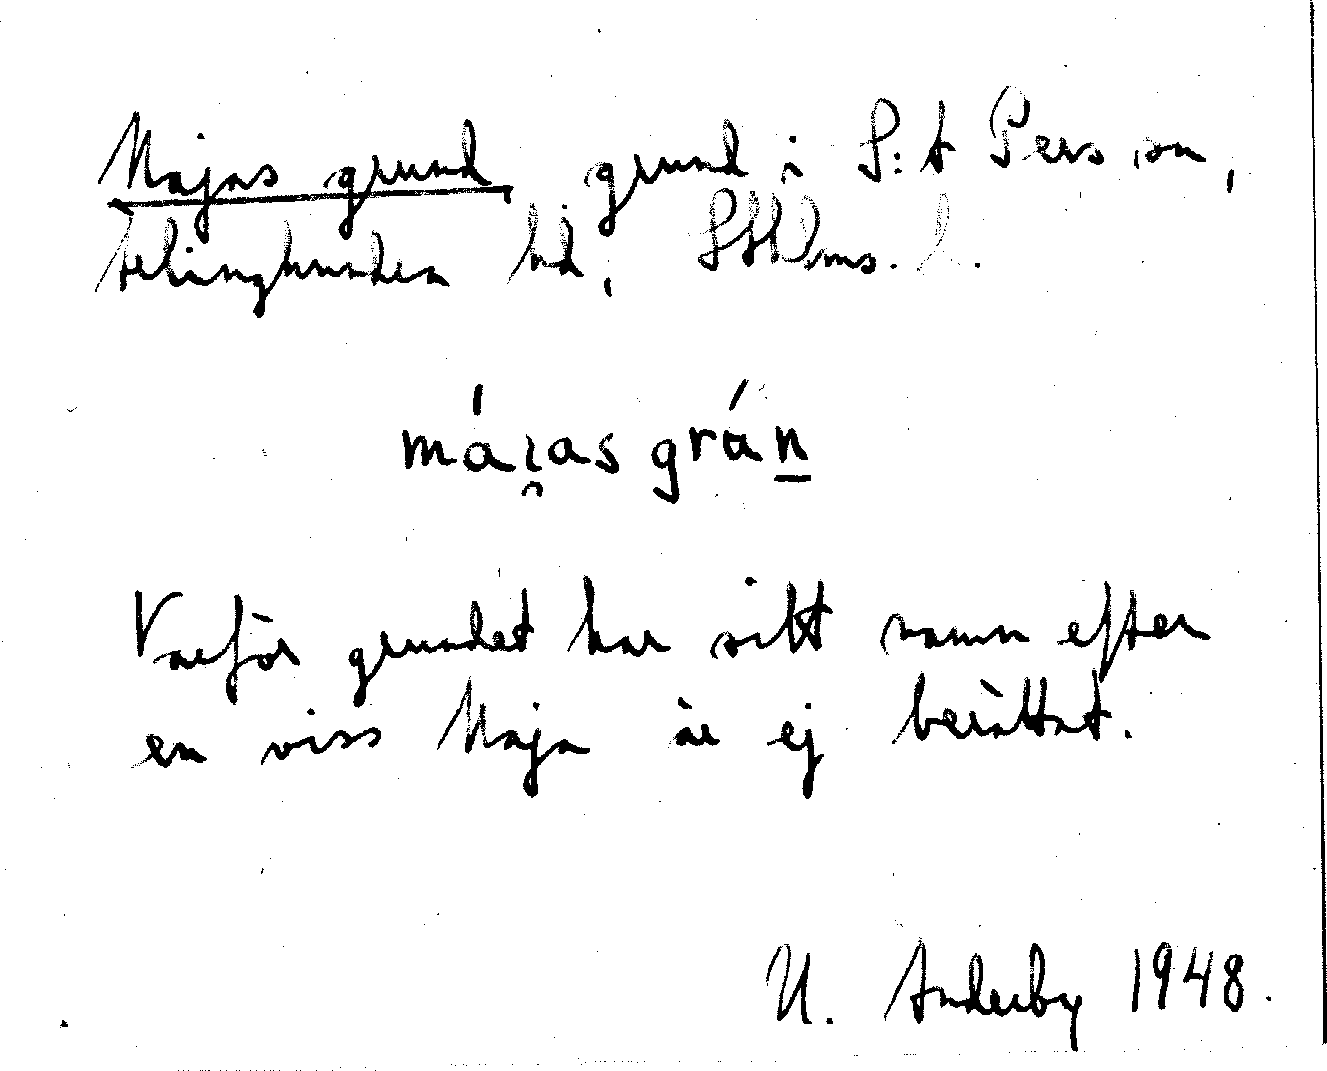 Majas grund, grund i S:t Pers sn,
Ærlinghundra hd, Sthlms. l.
má́i̯as grá́n̲
Varför grundet har sitt namn efter
en viss Maja är ej berättat.
U. Anderby 1948.